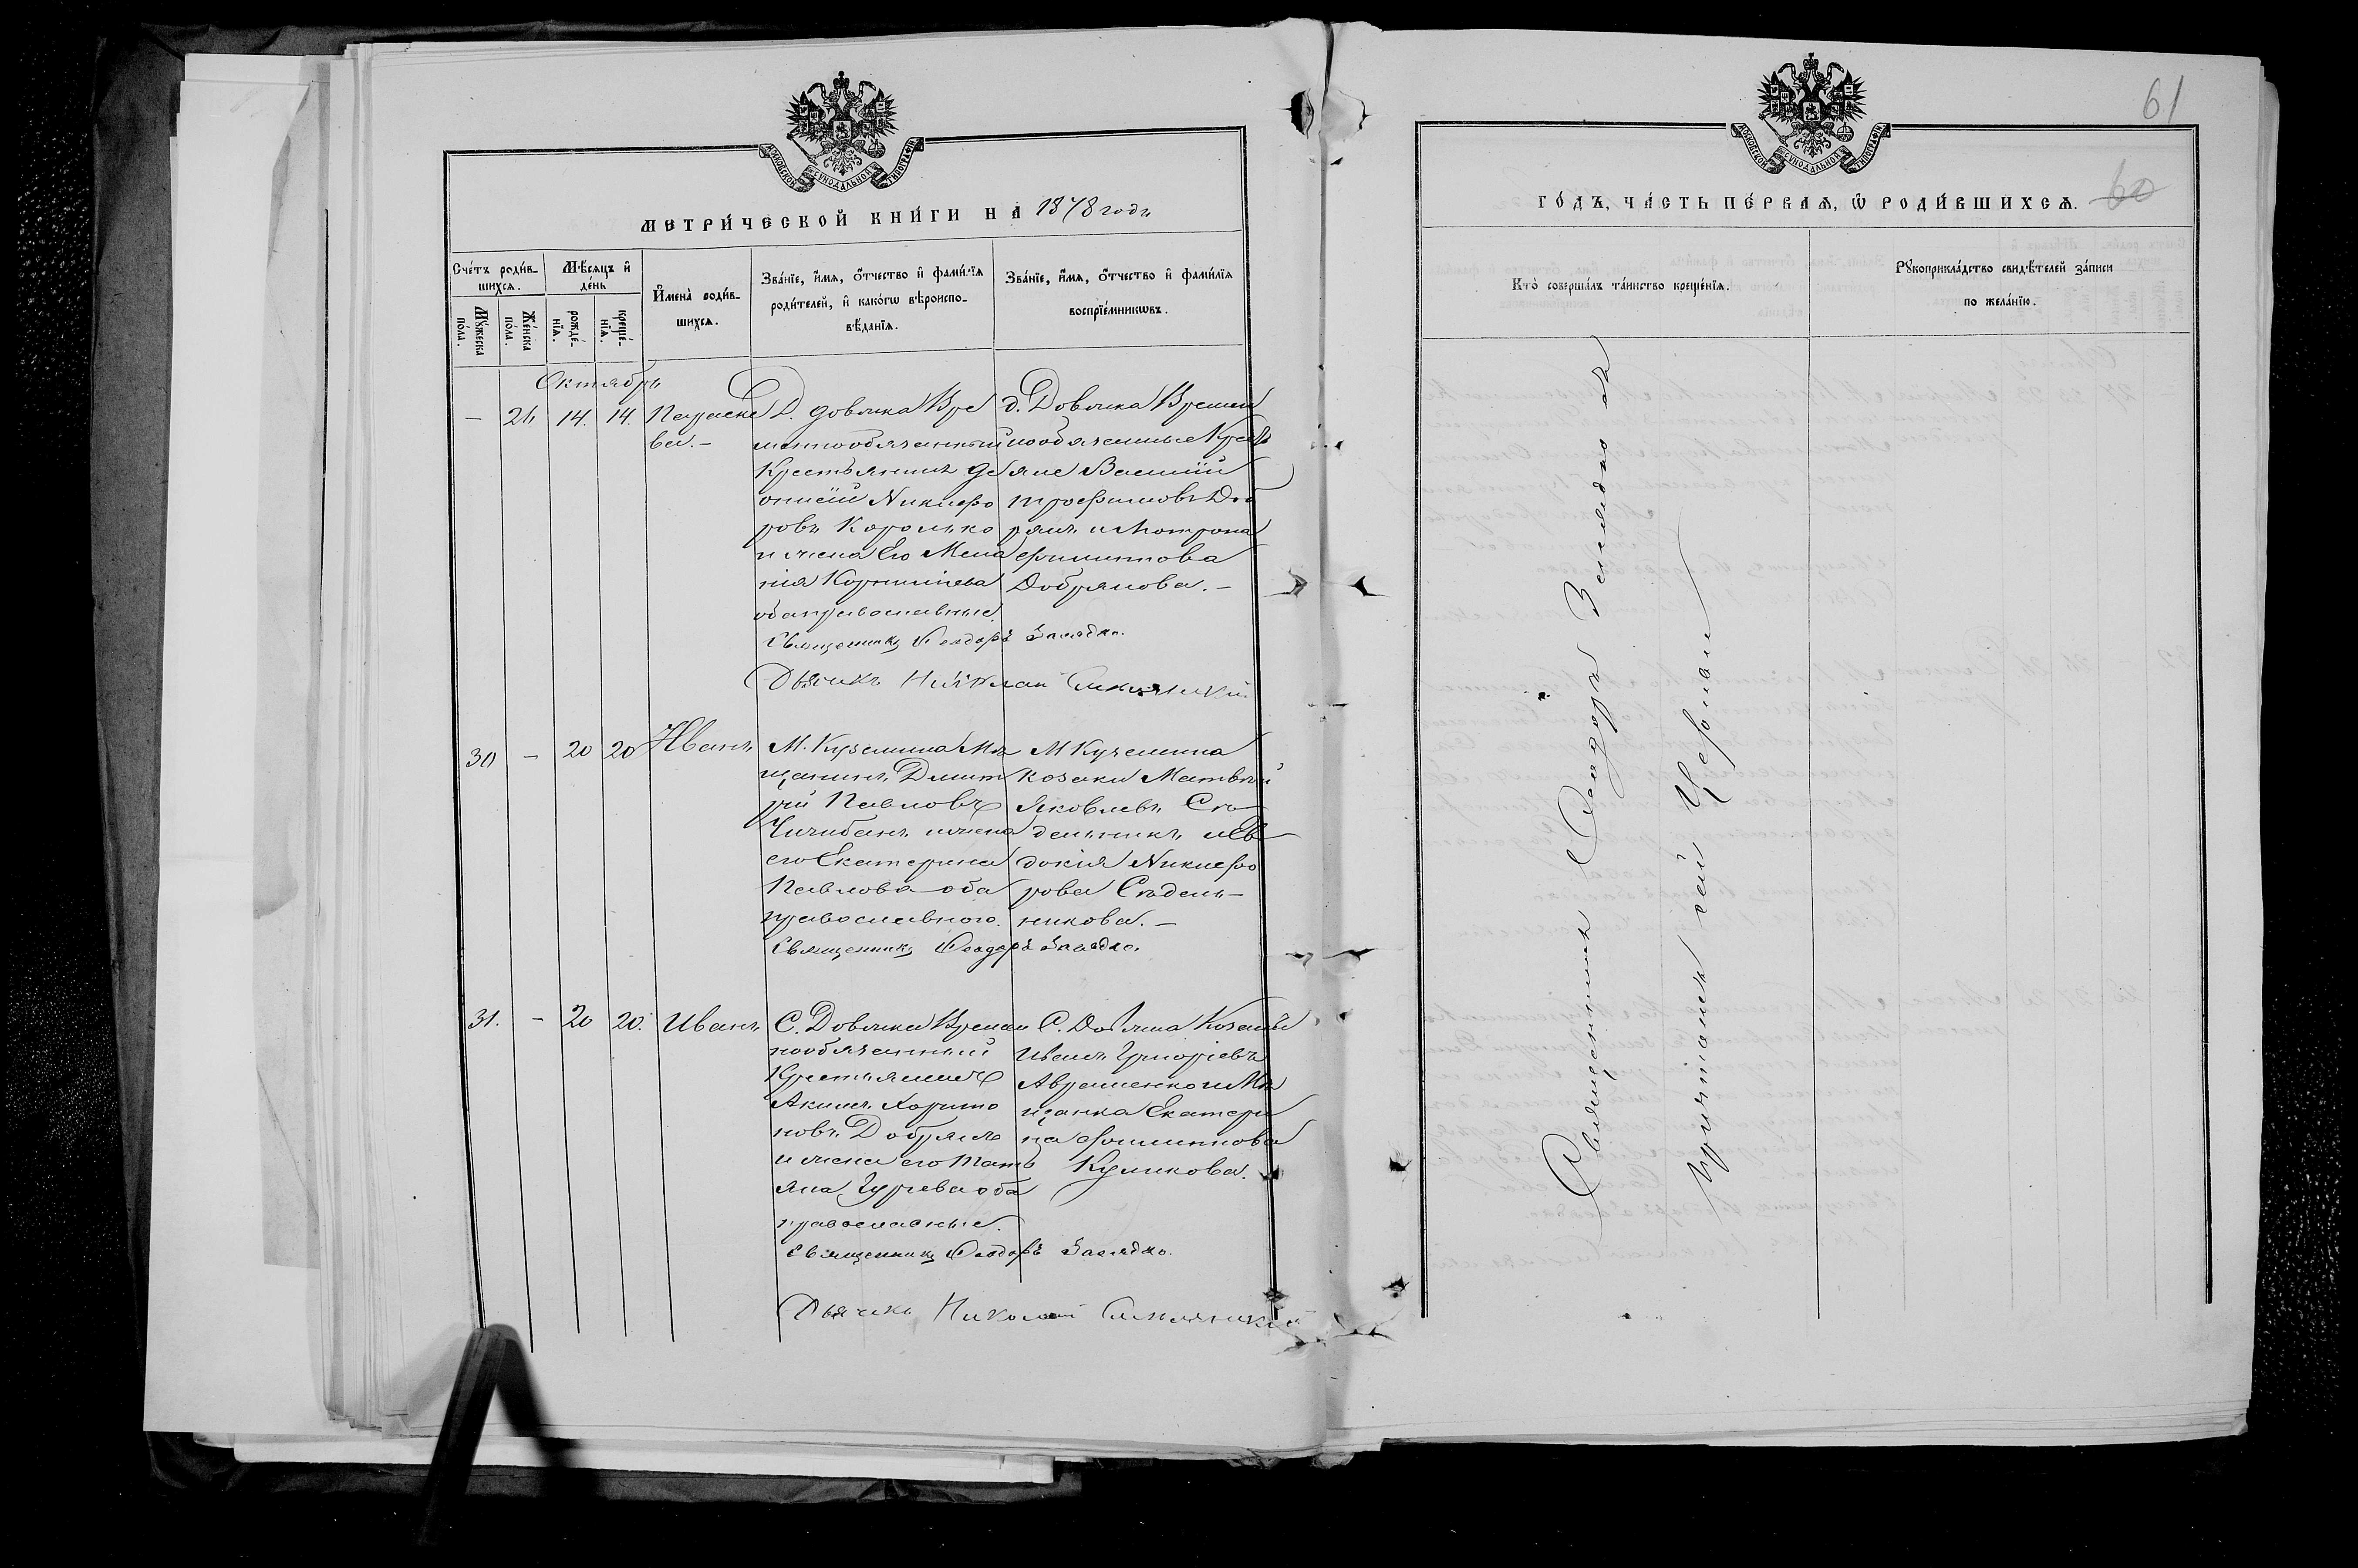 МОСКОВСКОЙ СУНОДАЛЬНОЙ ТИПОГРАФІИ
МЕТРИ́ЧЕСКОЙ КНИ́ГИ НА 1878 годъ
Сче́тъ роди́в-
шихсѧ.
Мꙋ́жеска по́ла.
Же́нска по́ла.
Мѣ́сѧцъ и҆ де́нь
рожде́-нїѧ.
креще́-нїѧ.
И҆мена̀ роди́в-
шихсѧ.
Зва́нїе, и҆́мѧ, ѻ҆́тчество и҆ фами́лїѧ
роди́телей, и҆ како́гѡ вѣроиспо-
вѣ́данїѧ.
Зва́нїе, и҆́мѧ, ѻ҆́тчество и҆ фами́лїѧ
воспрїе́мникѡвъ.
Октябрь
— 24 14. 14. Параске
ва. —
Д. Довжика Вре
меннообязанный
Крестьянинъ Де
онисій Никифо
ровъ Королько
и жена Его Мела
нія Корниліева
оба православные.
д. Довжика Времен
нообязанные Крестъ
яне Василій
Трофимовъ Доб
рякъ и Мотрона
Филиппова
Добрякова. —
Священникъ Феодоръ Заслядко.
Дьячикъ Николай
30 — 20 20 Иванъ
М. Куземина Мѣ
щанинъ Димит
рій Павловъ
Чичибанъ и жена
его Екатерина
Павлова оба
православного.
М Куземина
козаки Матвѣй
Яковлевъ Съ
дельникъ и Ев
докія Никифо
рова Съдель-
никова. —
Священникъ Феодоръ Заслядко.
31. — 20 20. Иванъ
С. Довжика Времен
нообязанный
Крестьянинъ
Акимъ Харито
новъ Добрякъ
и жена его Тать
яна Гурьева оба
православные.
С. Довжика Козакъ
Иванъ Григоріевъ
Авраменко и Мѣ
щанка Екатери
на Филиппова
Куликова.
Священникъ Феодоръ Заслядко.
Дьячикъ Николай
61
МОСКОВСКОЙ СУНОДАЛЬНОЙ ТИПОГРАФІИ
ГО́ДЪ, ЧА́СТЬ ПЕ́РВАѦ, Ѽ РОДИ́ВШИХСѦ. 60
Кто̀ соверша́лъ та́инство креще́нїѧ.
Рꙋкоприкла́дство свидѣ́телей за́писи
по жела́нїю.
Священникъ Феодоръ Заслядко съ
причтомъ сей Церкви